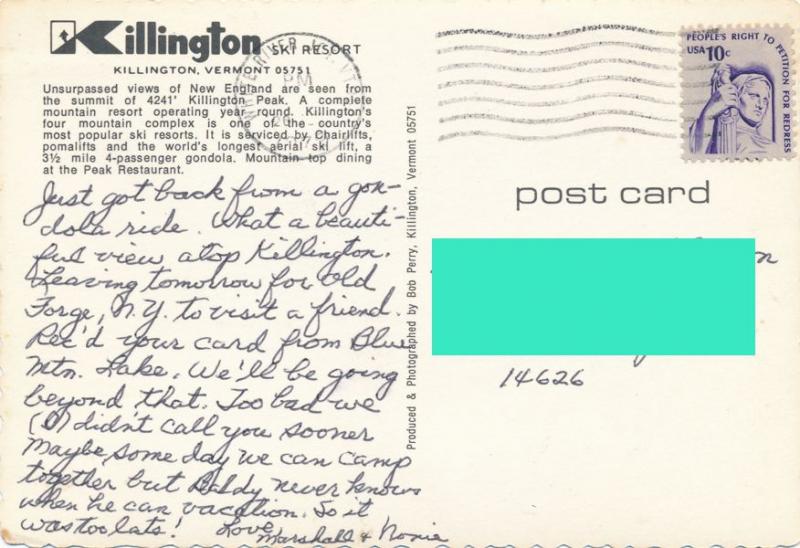 Killington SKI RESORT
KILLINGTON, VERMONT 05751
Unsurpassed views of New England are seen from
the summit of 4241' Killington Peak. A complete
mountain resort operating year round. Killington's
four mountain complex is one of the country's
most popular ski resorts. It is serviced by Chairlifts,
pomalifts and the world's longest aerial ski lift, a
3½ mile 4-passenger gondola. Mountain top dining
at the Peak Restaurant.
Just got back from a gon-
dola ride. What a beauti-
ful view atop Killington.
Leaving tomorrow for Old
Forge, N.Y. to visit a friend.
Rec'd your card from Blue
Mtn. Lake. We'll be going
beyond that. Too bad we
(I) didn't call you sooner
Maybe some day we can camp
together but Daddy never knows
when he can vacation. So it
was too late! Love
Marshall + Nonie
Produced & Photographed by Bob Perry, Killington, Vermont 05751
RIVER
PM
PEOPLE'S RIGHT TO PETITION FOR REDRESS
USA 10c
post card
14626